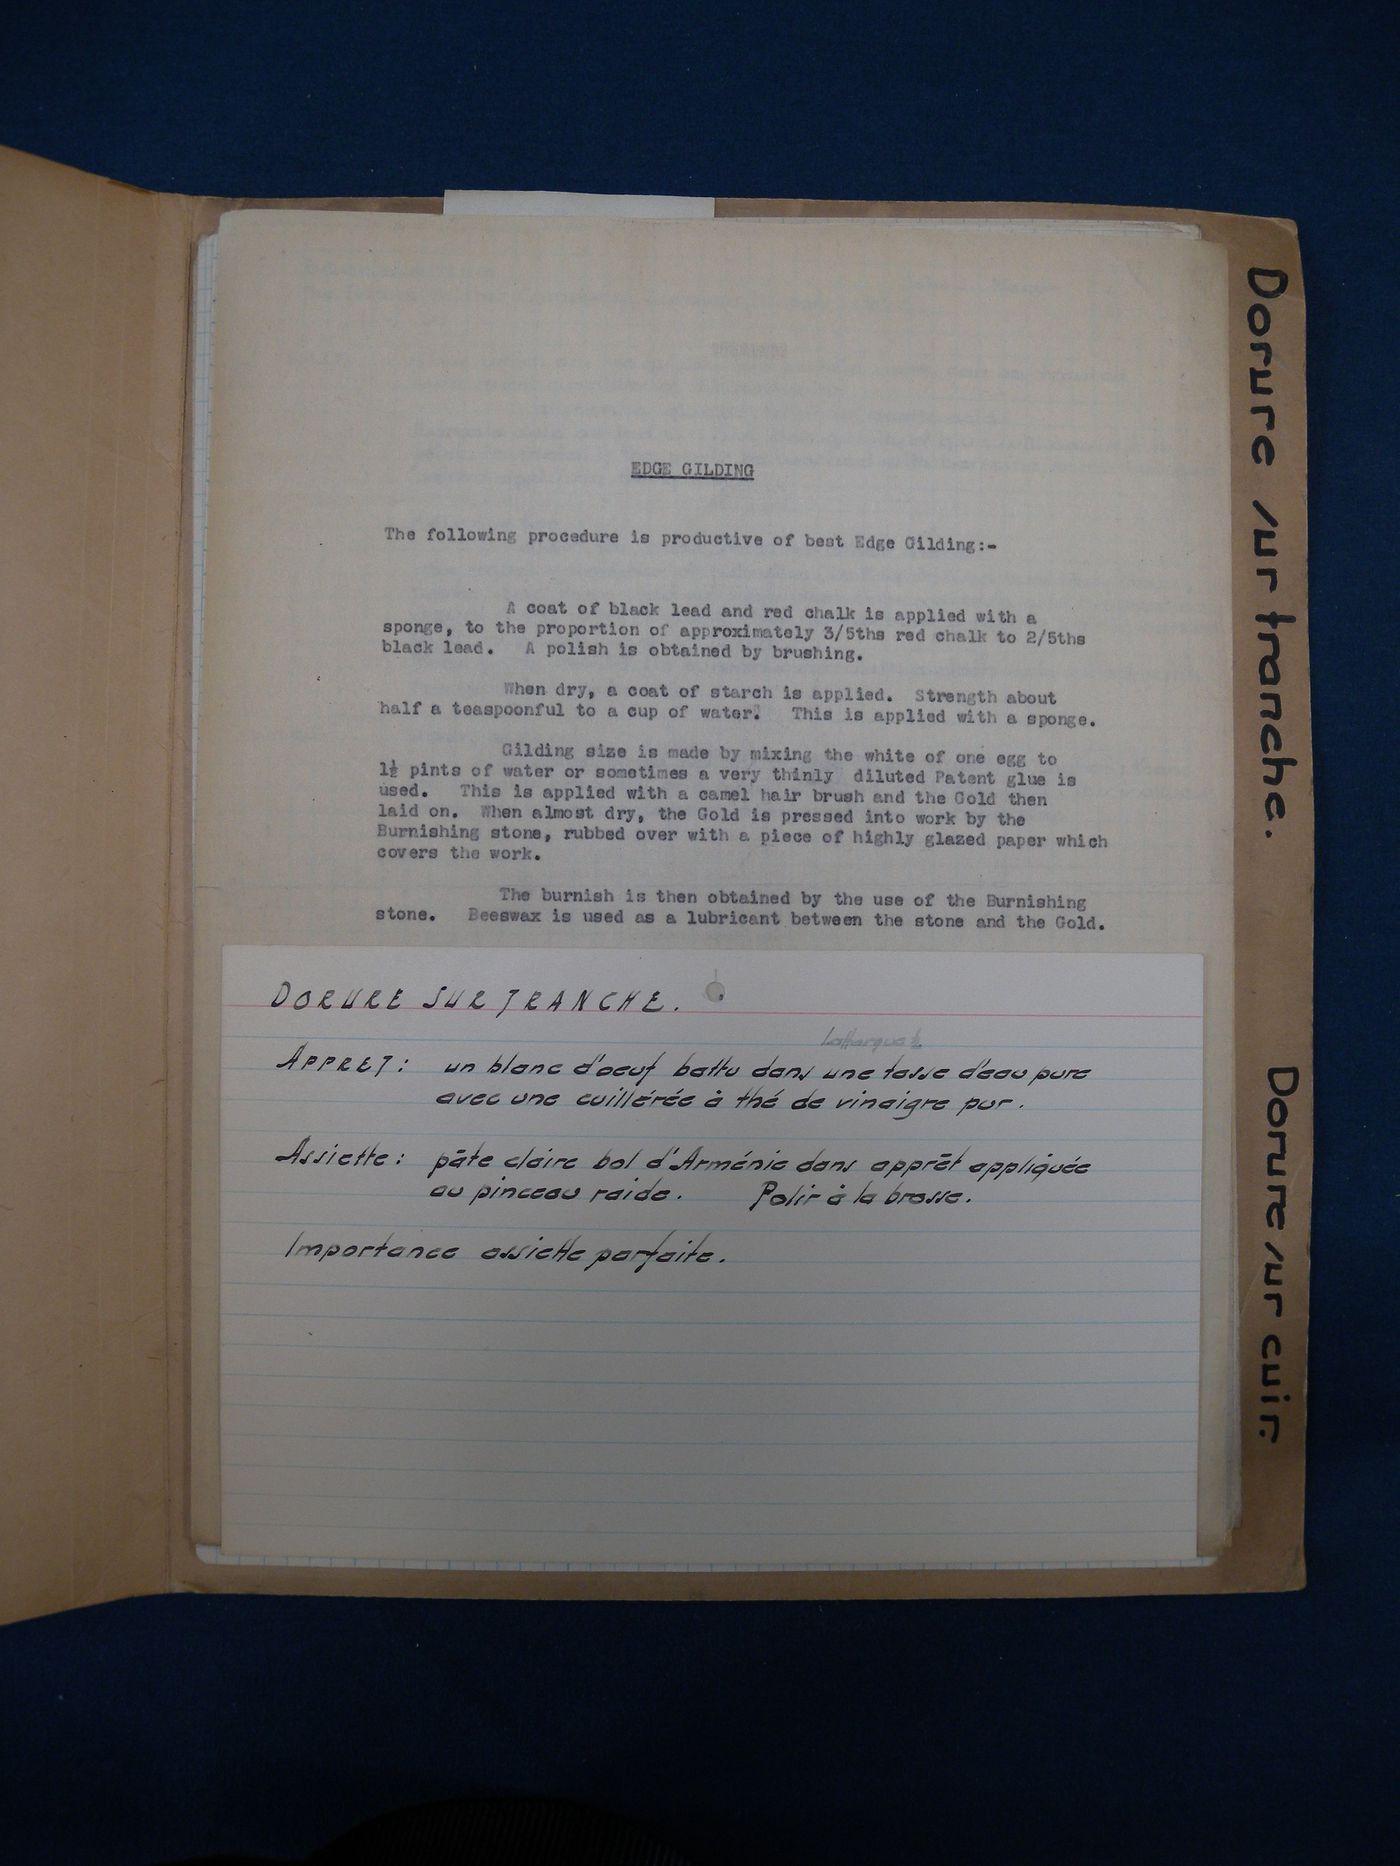 EDGE GILDING
The following procedure is productive of best Edge Gilding:-
A coat of black lead and red chalk is applied with a
sponge, to the proportion of approximately 3/5ths red chalk to 2/5ths
black lead. A polish is obtained by brushing.
When dry, a coat of starch is applied. Strength about
half a teaspoonful to a cup of water. This is applied with a sponge.
Gilding size is made by mixing the white of one egg to
1½ pints of water or sometimes a very thinly diluted Patent glue is
used. This is applied with a camel hair brush and the Gold then
laid on. When almost dry, the Gold is pressed into work by the
Burnishing stone, rubbed over with a piece of highly glazed paper which
covers the work.
The burnish is then obtained by the use of the Burnishing
stone. Beeswax is used as a lubricant between the stone and the Gold.
DORURE SUR TRANCHE.
APPRET: un blanc d'oeuf battu dans une tasse d'eau pure
avec une cuillérée à thé de vinaigre pur.
Assiette: pâte claire bol d'Arménie dans apprêt appliquée
au pinceau raide. Polir à la brosse.
Importance assiette parfaite.
Dorure sur tranche.
Dorure sur cuir.